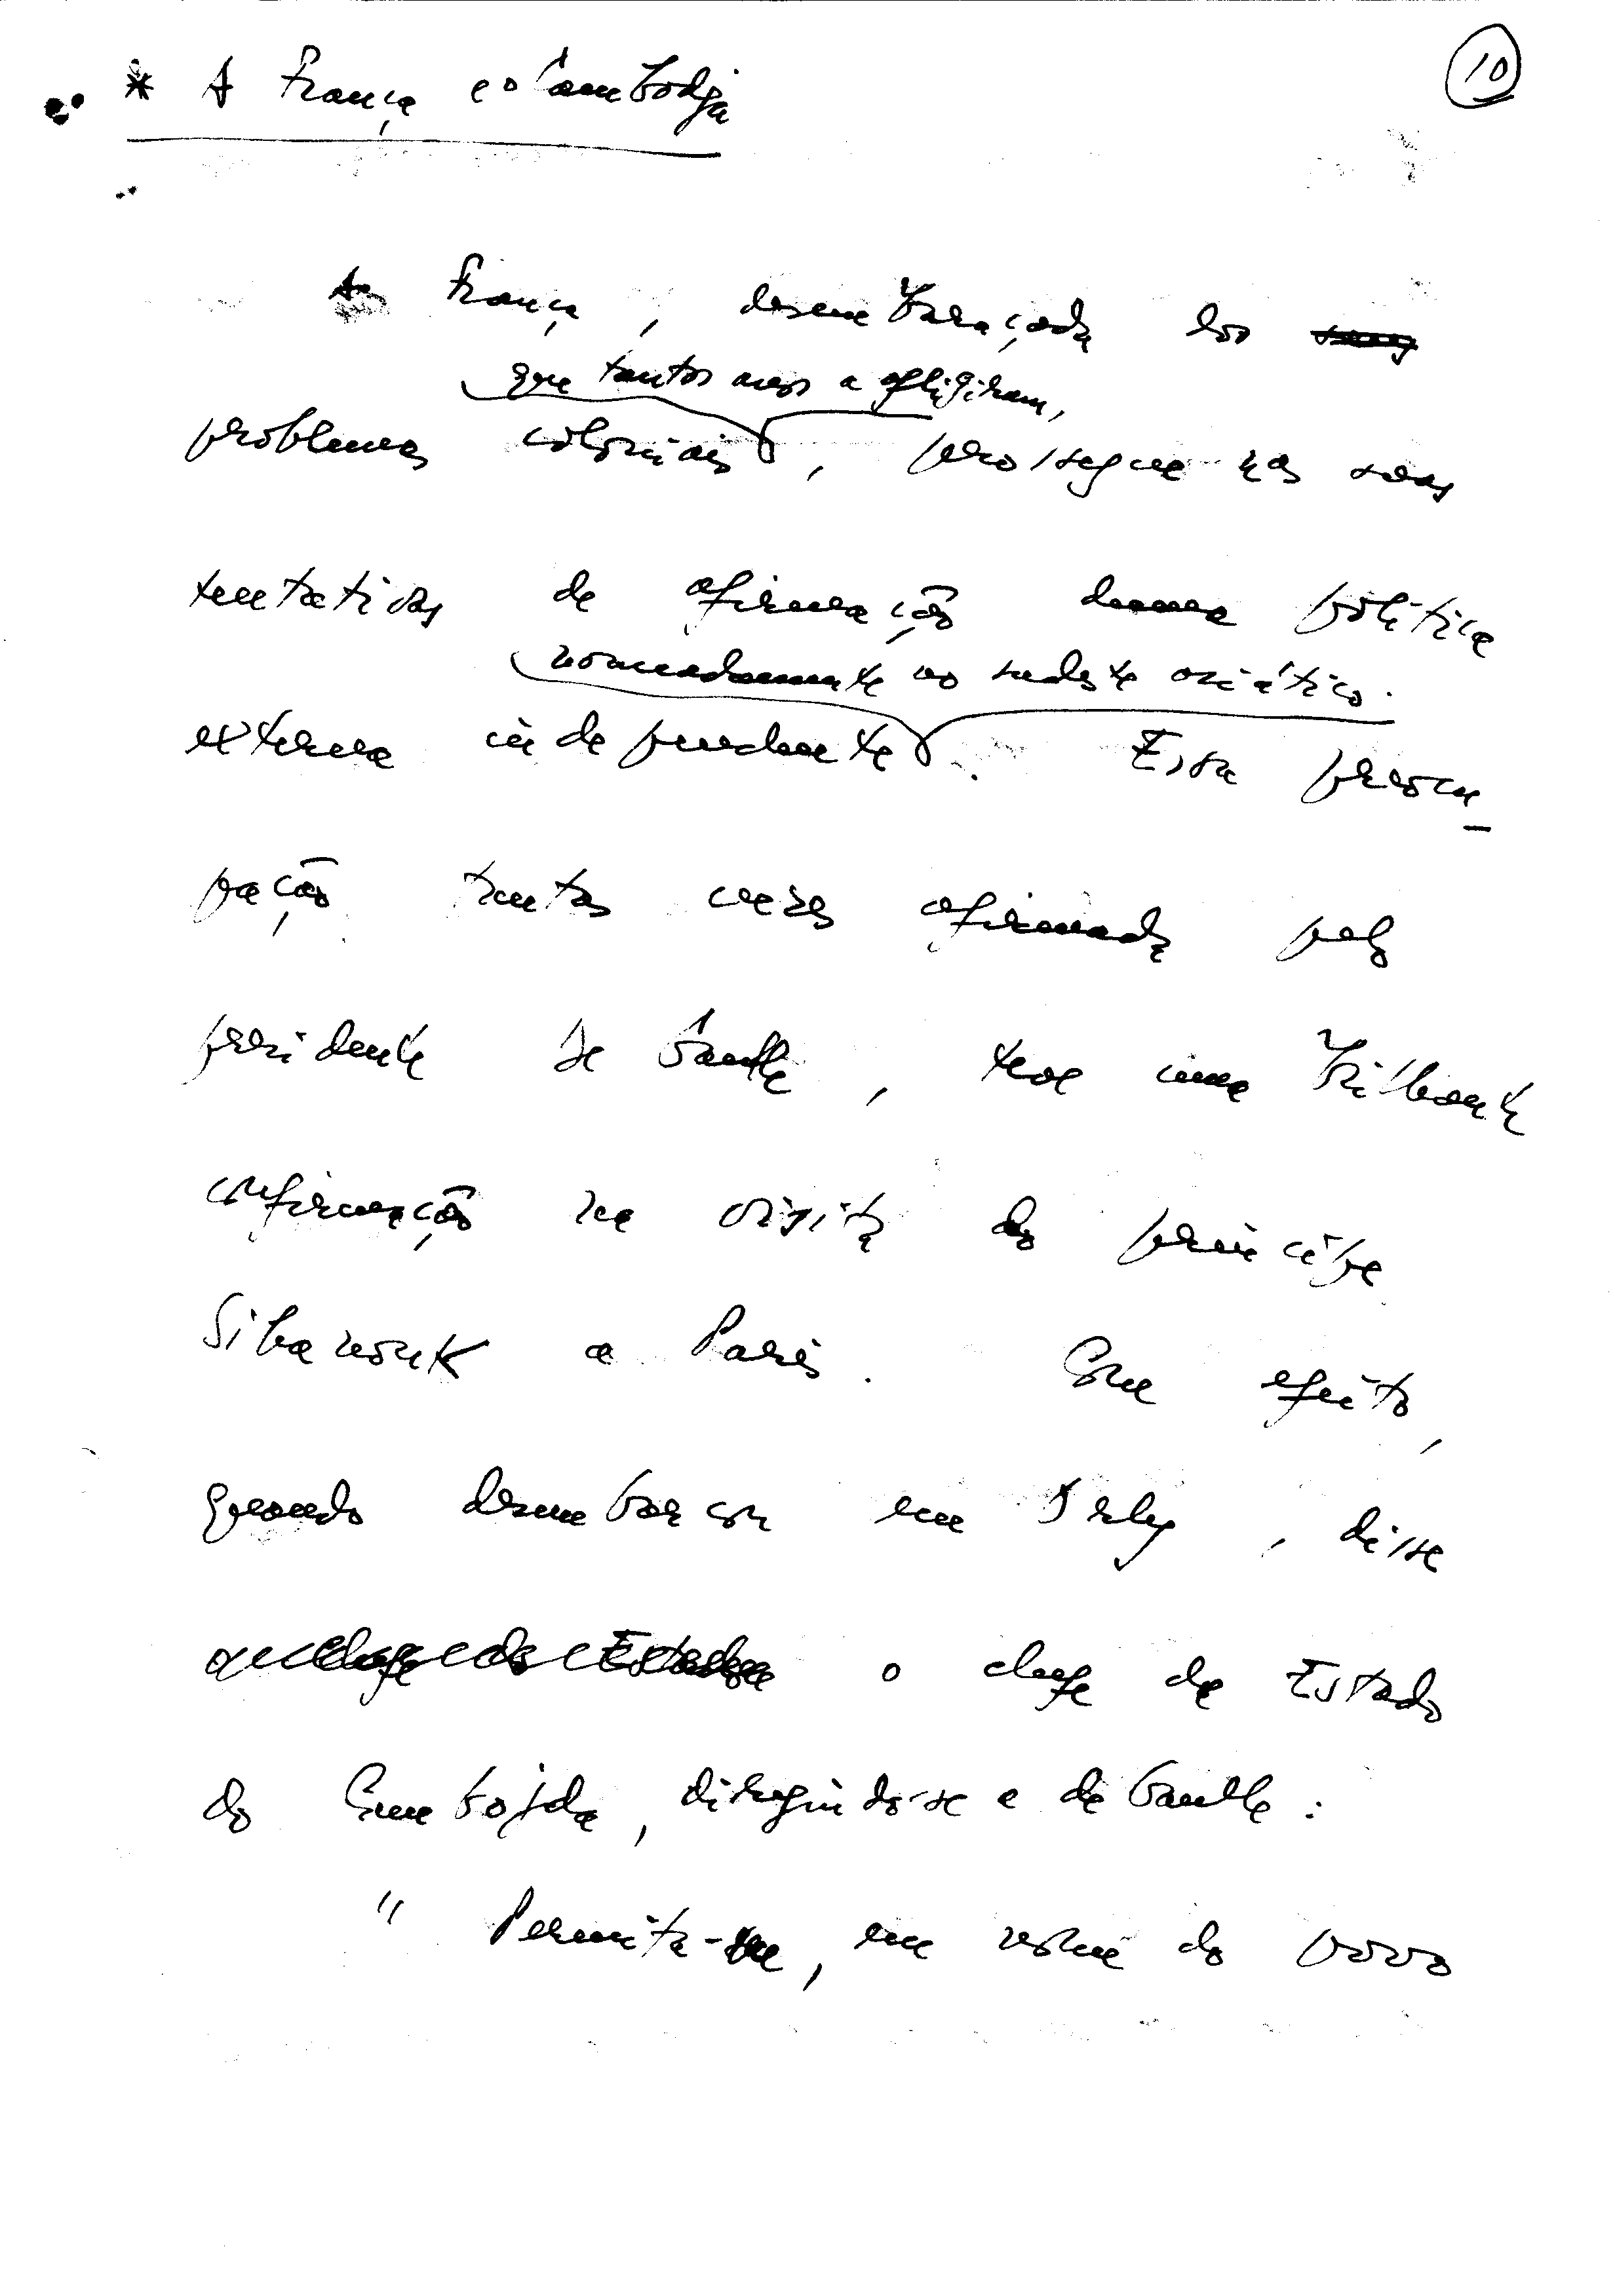 10
* A França e o Cambodja
A França, desembaraçada dos
que tantos anos a afligiram,
problemas coloniais, prossegue nas suas
tentativas de afirmação duma política
nomeadamente no sudeste asiático.
externa independente. Essa preocu_
pação tantas vezes afirmada pelo
presidente de Gaulle, teve uma brilhante
confirmação na visita do príncipe
Sihanouk a Paris. Com efeito,
quando desembarcou em Orly, disse
o chefe de Estado
do Cambojda, dirigindo-se a de Gaulle:
" Permita-me, em nome do povo